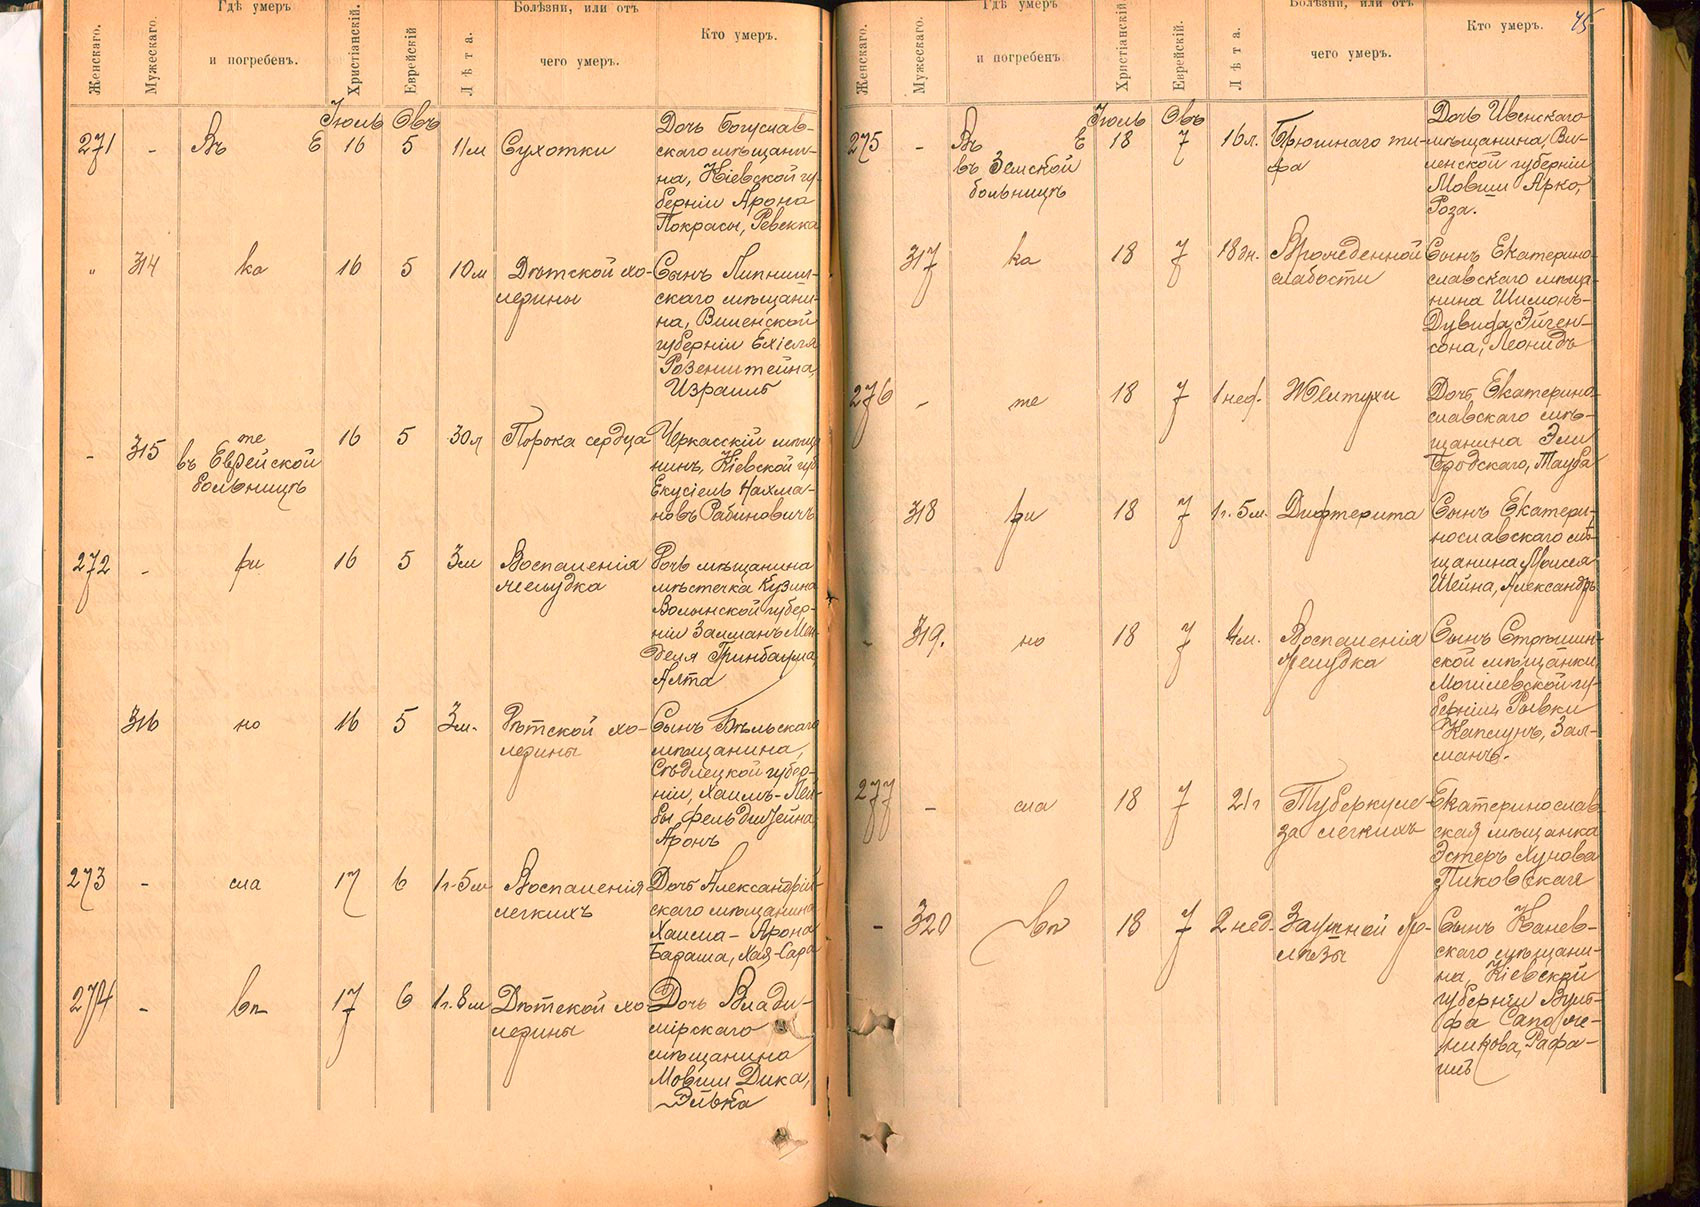 Женскаго.
Мужескаго.
Гдѣ умеръ
и погребенъ.
Христіанскій.
Еврейскій
Лѣта.
Болѣзни, или отъ
чего умеръ.
Кто умеръ.
Іюль Овъ
271 - Въ Е 16 5 11м Сухотки
Дочь Богуслав-
скаго мѣщани-
на, Кіевской гу-
берніи Арона
Покрасы, Ревекка
" 314 ка 16 5 10м Дѣтской хо-
лерины
Сынъ Липниш-
скаго мѣщани-
на, Виленской
губерніи Ехіеля
Розенштейна,
Израиль
- 315 те 16 5 30л Порока сердца
въ Еврейской
больницѣ
Черкасскій мѣща
нинъ, Кіевской губ
Екусіель Нахма-
новъ Рабиновичъ
272 - ри 16 5 3м Воспаленія
желудка
Дочь мѣщанина
мѣстечка Кузина
Волынской губер-
ніи Залманъ Мен-
деля Гринбаума,
Алта
316 но 16 5 3м. Дѣтской хо-
лерины
Сынъ Бѣльскаго
мѣщанина,
Сѣдлецкой губер-
ніи, Хаимъ-Лей-
бы Фельдштейна
Аронъ
273 - сла 17 6 1г.5м Воспаленія
легкихъ
Дочь Александрій-
скаго мѣщанина
Хаима-Арона
Бараша, Хая-Сара
274 - вп 17 6 1г.8м Дѣтской хо-
лерины
Дочь Влади-
мірскаго
мѣщанина
Мовши Дика,
Элька
75
Женскаго.
Мужескаго.
Гдѣ умеръ
и погребенъ
Христіанскій.
Еврейскій.
Лѣта.
Болѣзни, или отъ
чего умеръ.
Кто умеръ.
Іюль Овъ
275 - Въ Е 18 7 16л. Брюшнаго ти-
фа
въ Земской
больницѣ
Дочь Ивенскаго
мѣщанина, Ви-
ленской губерніи
Мовши Арко,
Роза.
317 ка 18 7 18дн. Врожденной
слабости
Сынъ Екатерино-
славскаго мѣща-
нина Шимонъ-
Дувида Эйген-
сона, Леонидъ
276 - те 18 7 1нед. Желтухи
Дочь Екатерино-
славскаго мѣ-
щанина Эли
Бродскаго, Тауба
318 ри 18 7 1г.5м. Дифтерита
Сынъ Екатери-
нославскаго мѣ-
щанина Моисея
Шейна, Александръ
- 319. но 18 7 4м. Воспаленія
желудка
Сынъ Стрѣшин-
ской мѣщанки,
Могилевской гу-
берніи, Рывки
Каплунъ, Зал-
манъ.
277 - сла 18 7 21г Туберкуле-
за легкихъ
Екатеринослав
ская мѣщанка
Эстеръ Хунова
Пиковская
- 320 вп 18 7 2нед. Заушной же-
лѣзы
Сынъ Канев-
скаго мѣщани-
на, Кіевской
губерніи Вуль-
фа Сапож-
никова, Рафа-
илъ